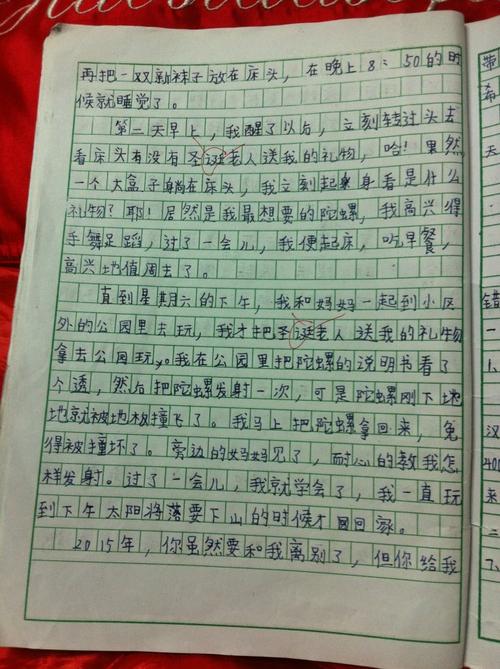 再把一双新袜子放在床头，在晚上8：50的时
候就睡觉了。
第二天早上，我醒了以后，立刻转过头去
看床头有没有圣诞老人送我的礼物，哈！果然
一个大盒子躺在床头，我立刻起身看是什么
礼物？耶！居然是我最想要的陀螺，我高兴得
手舞足蹈，过了一会儿，我便起床，吃早餐，
高兴地值周去了。
直到星期六的下午，我和妈妈一起到小区
外的公园里去玩，我才把圣诞老人送我的礼物
拿去公园玩。我在公园里把陀螺的说明书看了
个透，然后把陀螺发射一次，可是陀螺刚下地
地就被地板撞飞了。我马上把陀螺拿回来，免
得被撞坏了。旁边的妈妈见了，耐心的教我怎
样发射。过了一会儿，我就学会了，我一直玩
到下午太阳将落要下山的时候才回家。
2015年，你虽然要和我离别了，但你给我
带
希
天
错
一
1、
汉
401
来
三
二
7、